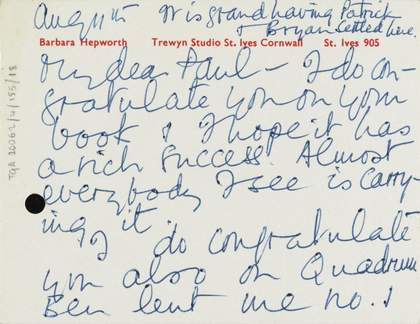 August It is grand having Patrick
& Bryan settled here.
Barbara Hepworth Trewyn Studio St. Ives Cornwall St. Ives 905
My dear Paul – I do con-
gratulate you on your
book & I hope it has
a rich success. Almost
everybody I see is carry-
ing it.
I do congratulate
you also on Quadrum
Ben lent me no. 1
TGA 20062/4/155/18